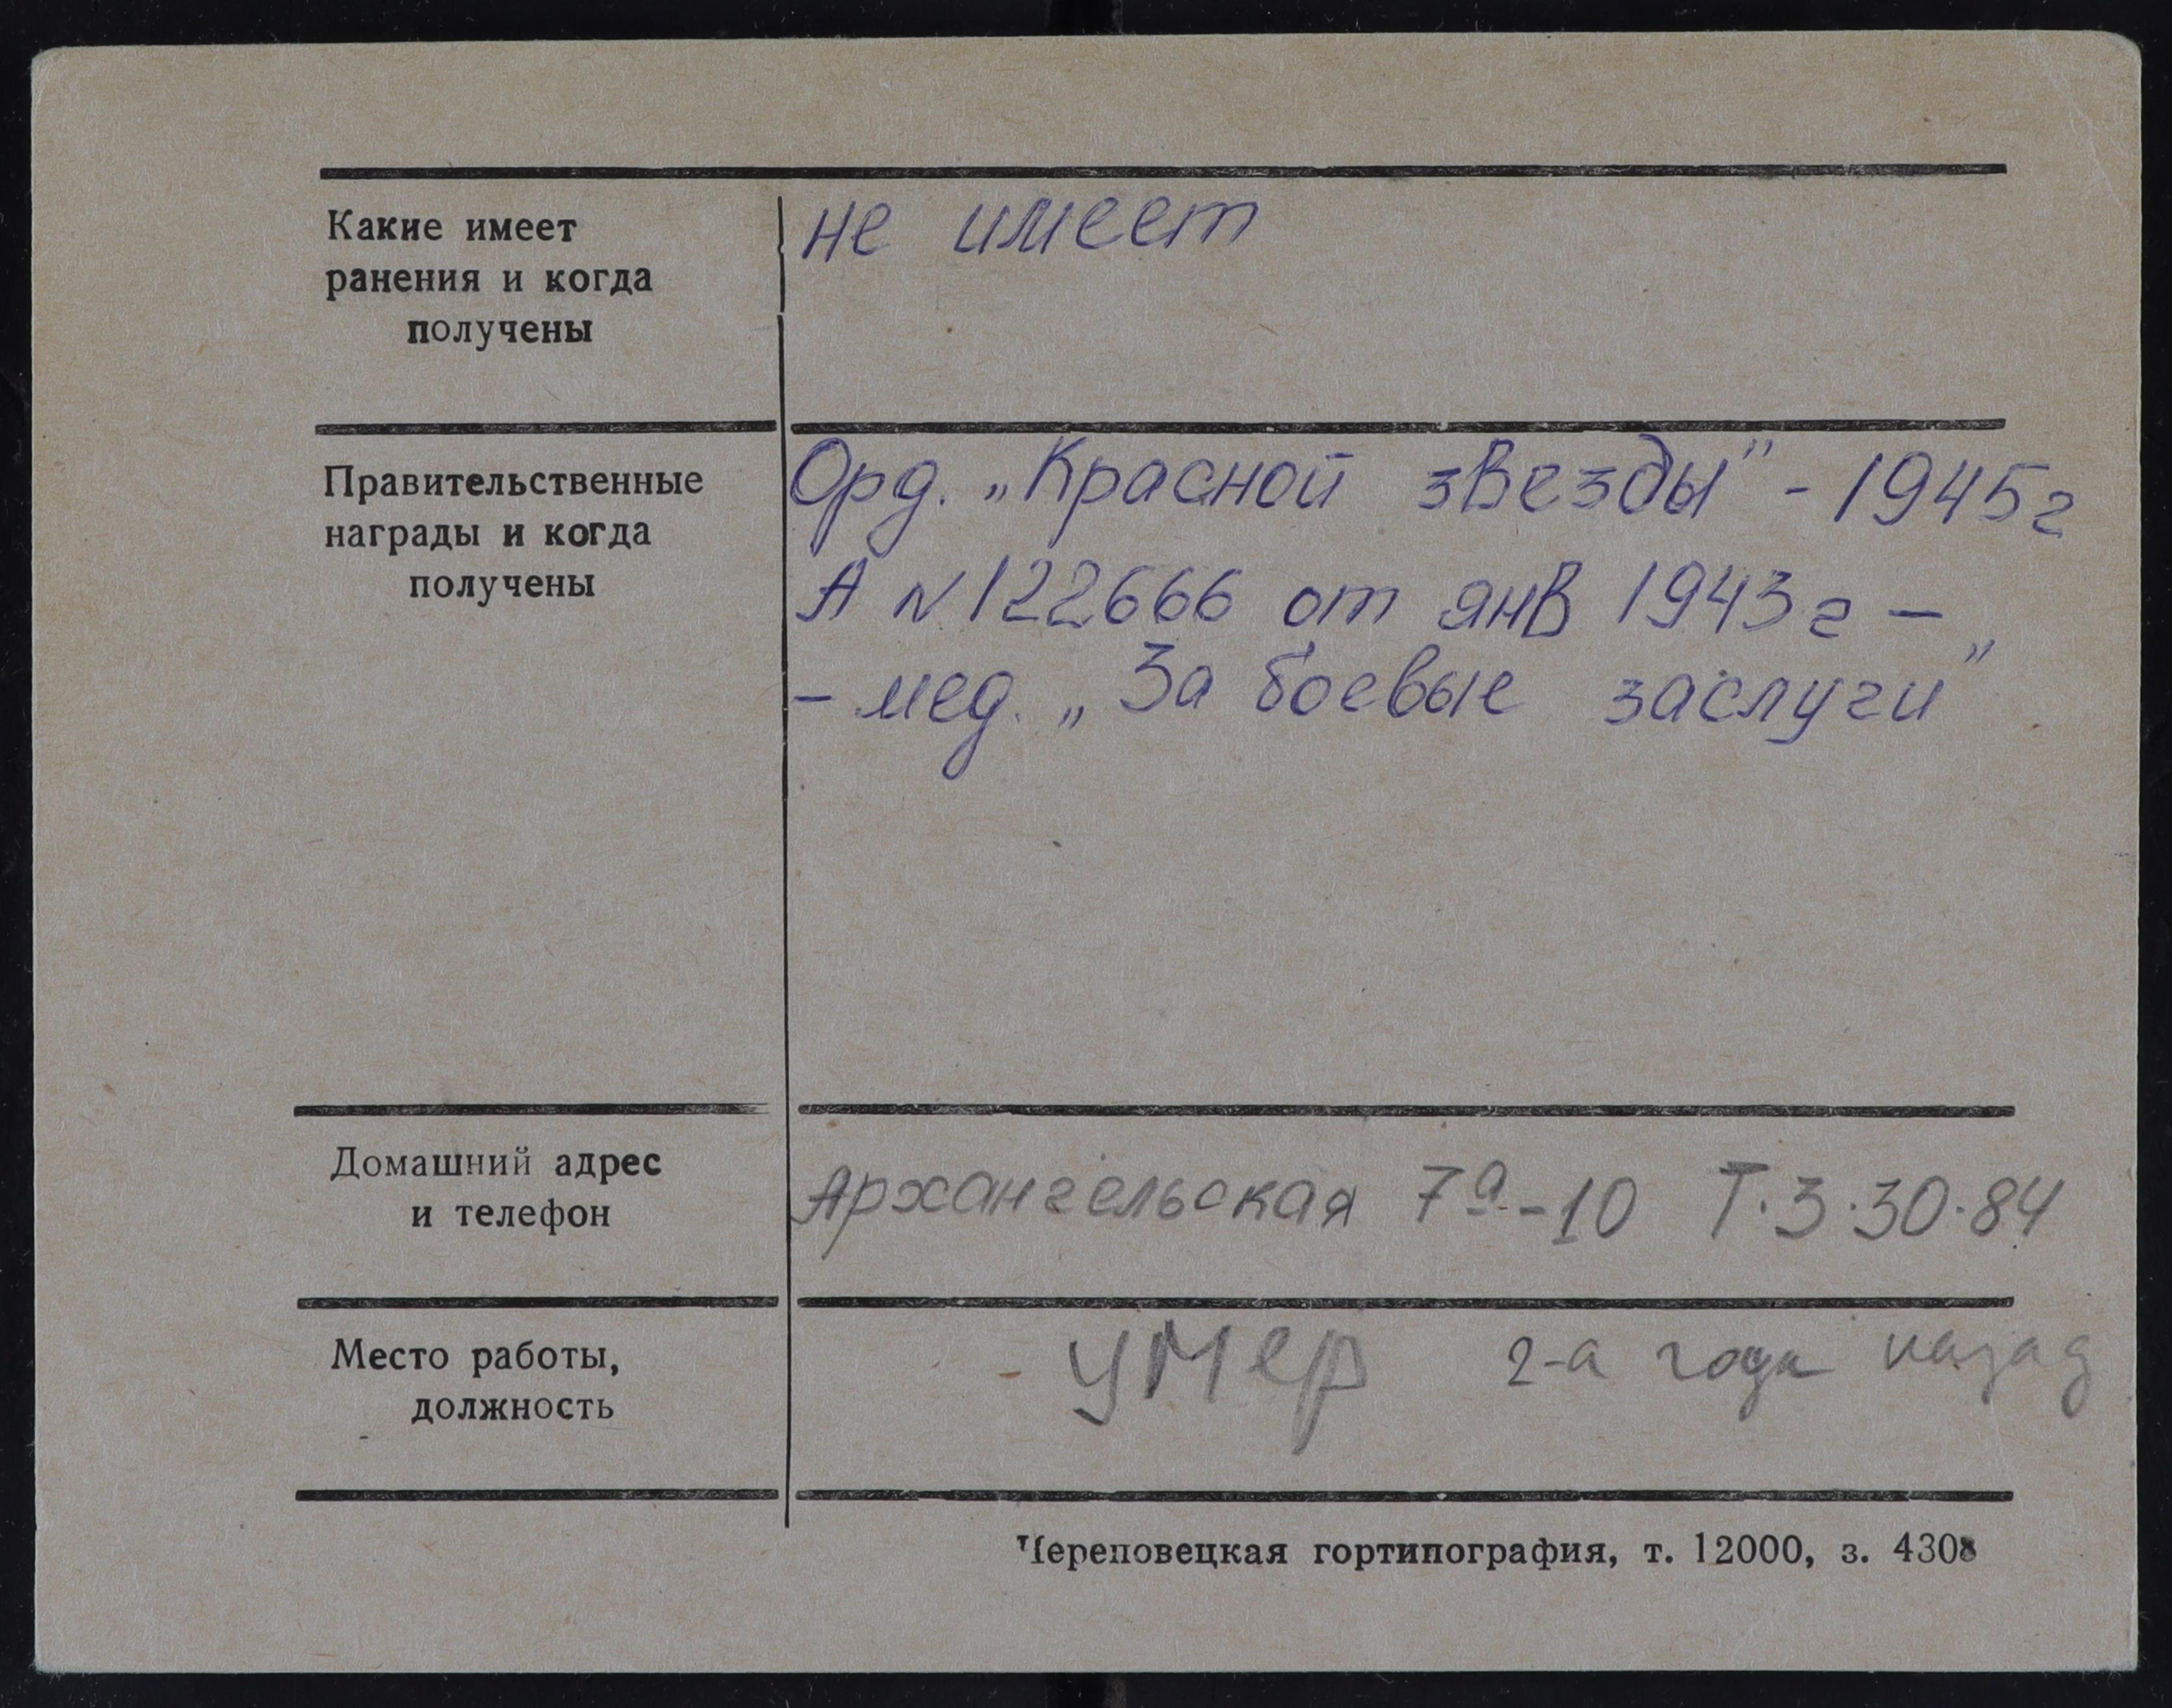 Какие имеет
ранения и когда
получены
не имеет
Правительственные
награды и когда
получены
Орд. „Красной звезды" - 1945г
А N 122666 от янв 1943г –
– мед. „За боевые заслуги"
Домашний адрес
и телефон
Архангельская 7а-10 Т.3.30.84
Место работы,
должность
умер 2-а года назад
Череповецкая гортипография, т. 12000, з. 4308